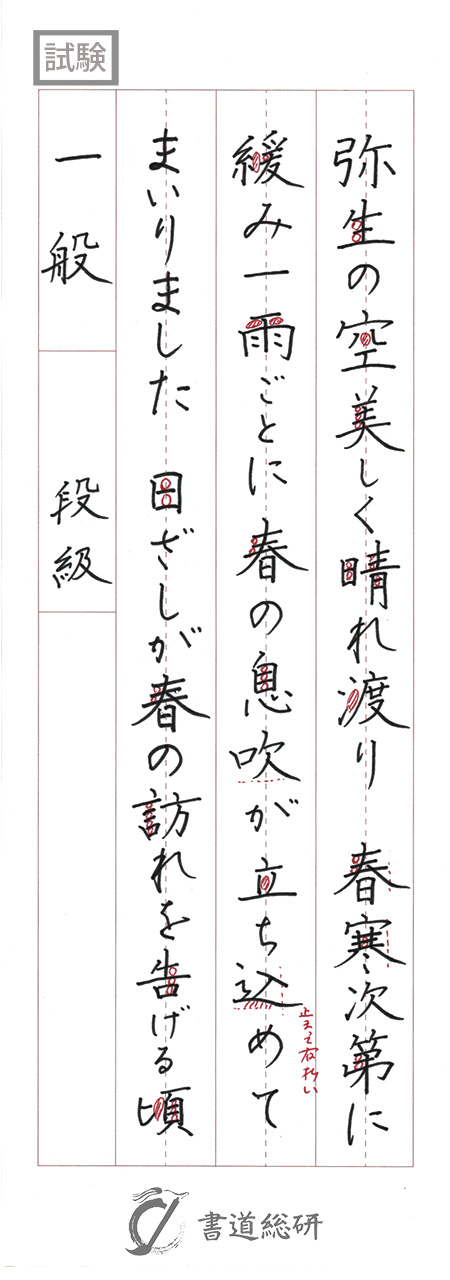 試験
弥生の空美しく晴れ渡り 春寒次第に
緩み一雨ごとに春の息吹が立ち込めて
まいりました 日ざしが春の訪れを告げる頃
一般
段級
書道総研